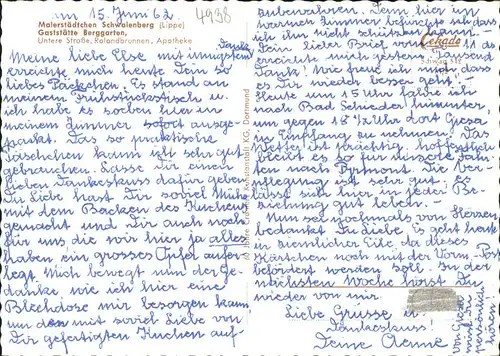 m 15. Juni 62
4998
Malerstädtchen Schwalenberg (Lippe)
Gaststätte Berggarten,
Untere Straße, Rolandbrunnen, Apotheke
Meine liebe Else, mit innigstem Dank
erreichte mich heute Dein so
liebes Päckchen. Es stand an
meinem Frühstückstisch u.
ich habe es soeben hier in
meinem Zimmer sofort ausge-
packt. Das so praktische
Täschchen kann ich sehr gut
gebrauchen. Lasse Dir einen
lieben Dankeskuss dafür geben.
Du Liebe hast Dir soviel Mühe
mit dem Backen des Kuchens
gemacht und Dir auch noch
für uns, die wir hier ja alles
haben ein grosses Opfer aufer-
legt. Mich bewegt nun der Ge-
danke wie ich hier eine
Blechdose mir besorgen kann
um den mit soviel Liebe von
Dir gefertigten Kuchen auf-
zubewahren. Dem hier im
warmen Zimmer befürchte ich, dass
ich ihn nicht schützen kann.
Dein lieber Brief vom 11. ds
erreichte mich gestern. Tausend
Dank! Wie freue ich mich dass
heute um 15 Uhr fahre ich
nach Bad Schieder hinunter,
um gegen 18 1/2 Uhr dort Gesa
in Empfang zu nehmen. Das
Wetter ist prächtig, hoffentlich
bleibt es so für unsere Fahr-
ten nach Pyrmont. Die Ver-
pflegung ist sehr gut - es
lässt sich hier in jeder Be-
ziehung gut leben. -
Nun sei nochmals von Herzen
bedankt Du Liebe. Es geht heute
in ziemlicher Eile, da dieses
Kärtchen noch mit der Vorm.-Post
befördert werden soll. In der
nächsten Woche hörst Du
wieder von mir.
Liebe Grüsse u.
Dankeskuss!
Deine Aenne
Cekade
Schwlbg 512
50 Jahre Cramers Kunstanstalt KG, Dortmund